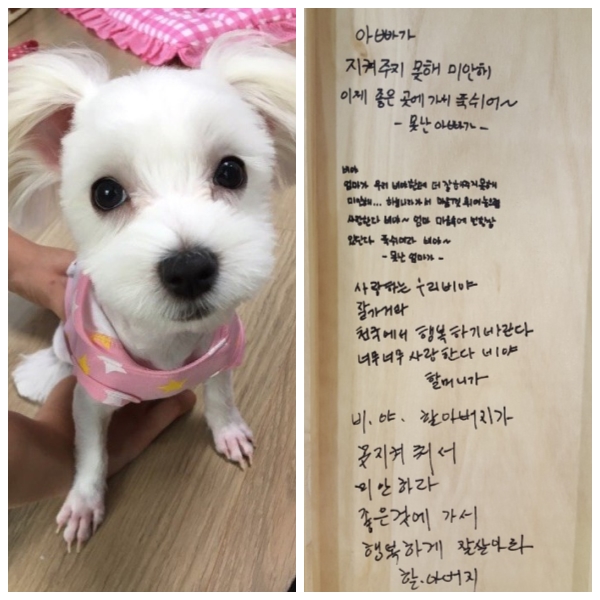 아빠가
지켜주지 못해 미안해
이제 좋은 곳에 가서 푹쉬어~
- 못난 아빠가 -
비야
엄마가 우리 비야한테 더 잘해주지못해
미안해...
사랑한다 비야~ 엄마 마음속에
푹쉬어라 비야~
- 못난 엄마가 -
사랑하는 우리비야
잘가거라
천국에서 행복하기바란다
너무너무 사랑한다 비야
할머니가
비.야. 할아버지가
못지켜줘서
미안하다
좋은곳에 가서
행복하게 잘살아라
할.아버지